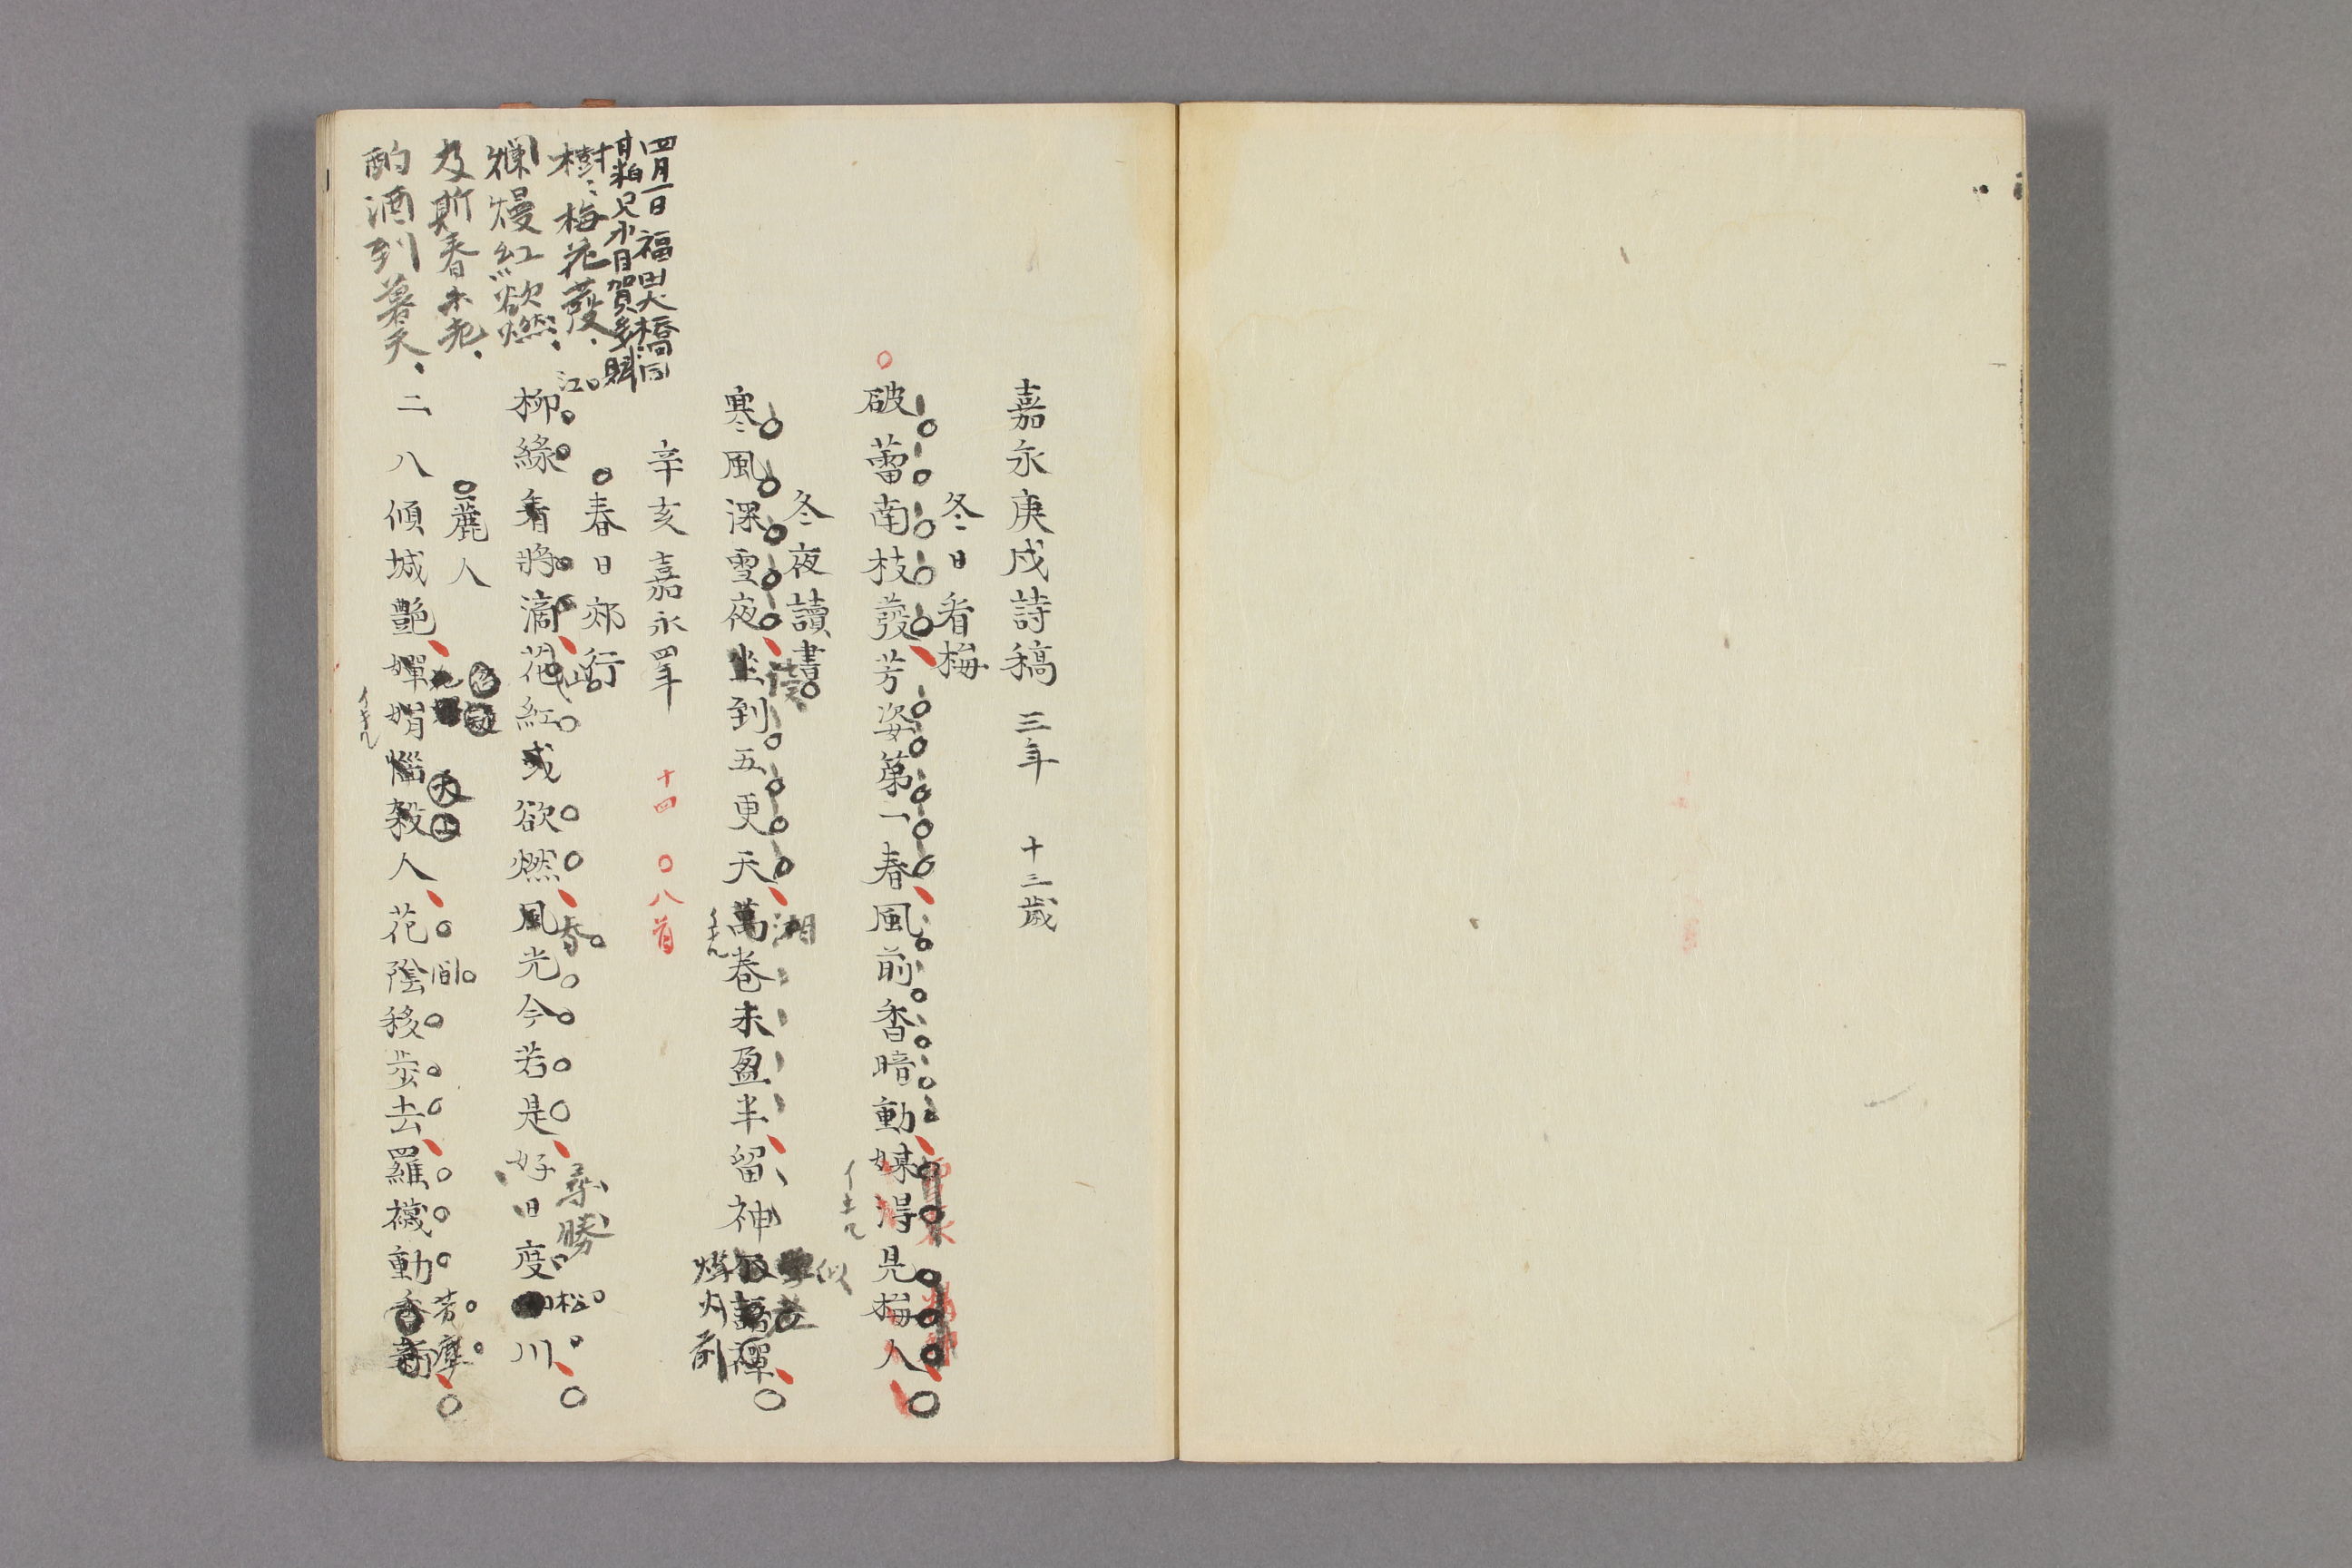 嘉永庚戌詩稿 三年 十三歳
冬日看梅
破蕾南枝發芳姿第一春風前香暗動媒得見梅人
冬夜讀書
寒風深雪夜坐到五更天萬巻未盈半留神
湘
似
辛亥嘉永四年 十四 八首
春日郊行
柳綠看將滴花紅或欲燃風光今若是好日度川
江
山
春
尋勝
松
麗人
二八傾城艶嬋娟惱殺人花陰移歩去羅襪動香
間
芳塵
四月一日福田大橋同
賀 賦
樹〻梅花發
爛熳紅欲燃
及斯春未老
酌酒到暮天